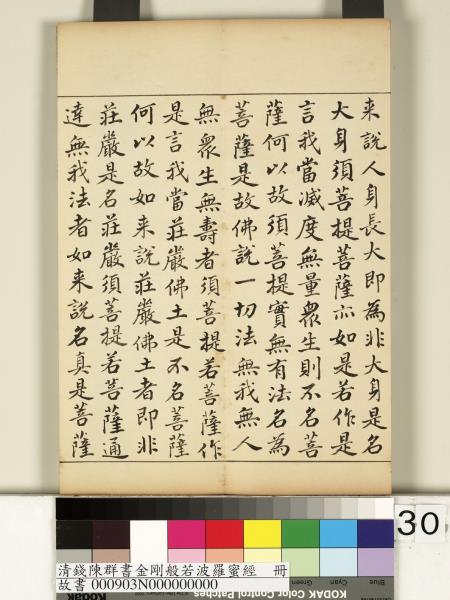 来說人身長大即為非大身是名
大身須菩提菩薩亦如是若作是
言我當滅度無量眾生則不名菩
薩何以故須菩提實無有法名為
菩薩是故佛說一切法無我無人
無眾生無壽者須菩提若菩薩作
是言我當莊嚴佛土是不名菩薩
何以故如来說莊嚴佛土者即非
莊嚴是名莊嚴須菩提若菩薩通
達無我法者如来說名真是菩薩
30
Blue
Cyan
Green
清錢陳群書金剛般若波羅蜜經 冊
故書 000903N000000000
KODAK Color Control Patches
KODAK